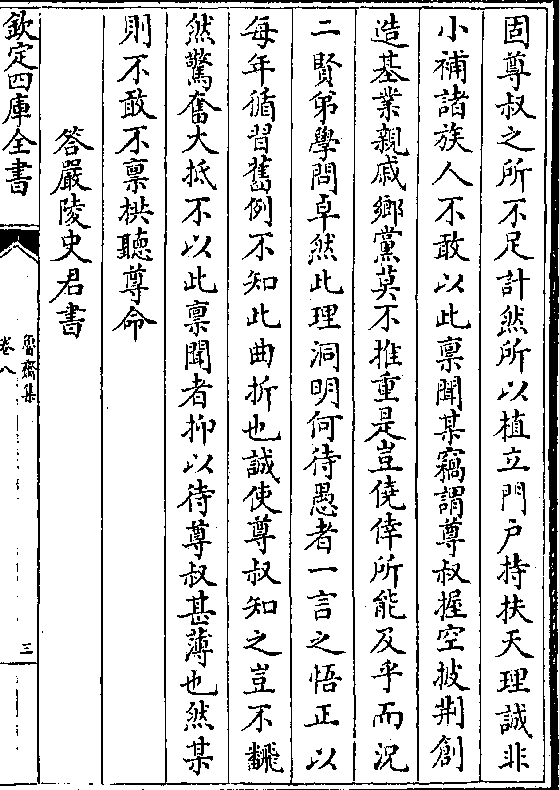 固尊叔之所不足計然所以植立門户持扶天理誠非
小補諸族人不敢以此禀聞某竊謂尊叔握空披荆創
造基業親戚鄉黨莫不推重是豈僥倖所能及乎而況
二賢弟學問卓然此理洞明何待愚者一言之悟正以
每年循習舊例不知此曲折也誠使尊叔知之豈不飜
然驚奮大抵不以此禀聞者抑以待尊叔甚薄也然某
則不敢不禀拱聽尊命
答嚴陵史君書
欽定四庫全書
魯齋集
卷八
三